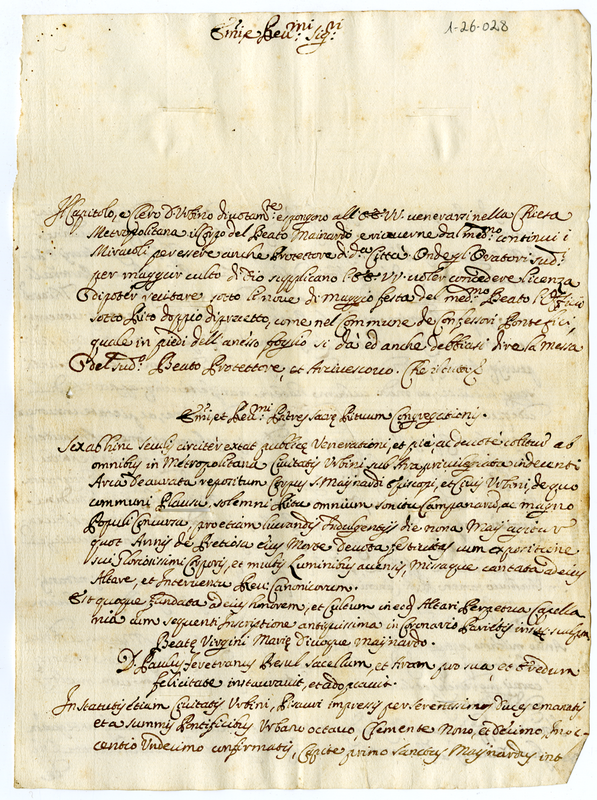 1-26-028
Emi, e Reu.mi Sig.ri
Il Capitolo, e Clero d'Urbino diuotam.te espongono all' EE. VV. venerarsi nella Chiesa
Metropolitana il Corpo del Beato Mainardo, e riceuerne dal med.mo continui i
Miracoli per essere anche Protettore di d.a Città. Onde gl'Oratori sud.i
per maggior culto di Dio supplicano l'EE. VV. voler concedere licenza
di poter recitare sotto li noue di Maggio festa del med.mo Beato l'Offitio
sotto Rito doppio di precetto, come nel Commune de Confessori Pontefici,
quale in piedi dell' annesso foglio si dà ed anche debbiasi dire la Messa
del sud.o Beato Protettore, et Arciuescouo. Che
Emi, et Reu.mi Patres Sacrę Rituum Congregationis.
Sex ab hinc seculis circiter extat publicę Venerationi, et piè, ac deuotè colitur ab
omnibus in Metropolitana Ciuitatis Urbini sub Ara priuilegiata in decenti
Arca Deaurata repositum Corpus S. Maynardi Episcopi, et Ciuis Urbini, de quo
communi Plausu, solemni Ritu omnium sonitu Campanarum, ac magno
Populi Concursu, pro etiam lucrandis Indulgentijs die nona Maij agitur
quot Annis de Pretiosa eius Morte deuota festiuitas cum expositione
sui Gloriosissimi Corporis, et multis Luminibus accensis, Missaque cantata ad eius
Altare, et Interuentu Reu. Canonicorum.
Est quoque fundata ad eius honorem, et Cultum in eod. Altari Perpetua Capella
nia cum sequenti Inscriptione antiquissima in Coronario Parietis
Beatę Virgini Marię Diuoque Maynardo.
D. Paulus Seueranus Presul Sacellum, et Aram pro sua, et heredum
felicitate instaurauit, et adopauit.
In Statutis etiam Ciuitatis Urbini, Pisauri impressis per Serenissimos Duces emanatis,
et a summis Pontificibus Urbano octauo, Clemente Nono, et Decimo, Inno
centio Undecimo confirmatis, Capite primo Sanctus Maynardus int